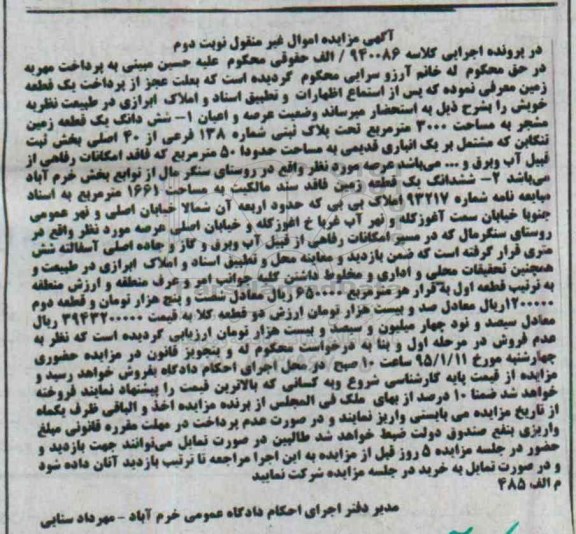 آگهی مزایده اموال غیر منقول نوبت دوم
در پرونده اجرایی کلاسه ۹۴۰۰۸۶ / الف حقوقی محکوم علیه حسین مبینی به پرداخت مهریه
در حق محکوم له خانم آرزو سرایی محکوم گردیده است که بعلت عجز از پرداخت یک قطعه
زمین معرفی نموده که پس از استماع اظهارات و تطبیق اسناد و املاک ابرازی در طبیعت نظریه
خویش را بشرح ذیل به استحضار میرساند وضعیت عرصه و اعیان ۱- شش دانگ یک قطعه زمین
مشجر به مساحت ۳۰۰۰ مترمربع تحت پلاک ثبتی شماره ۱۳۸ فرعی از ۴۰ اصلی بخش ثبت
تنکابن که مشتمل بر یک انباری قدیمی به مساحت حدودا ۵۰ مترمربع که فاقد امکانات رفاهی از
قبیل آب وبرق و ... می‌باشد عرصه مورد نظر واقع در روستای سنگر مال از توابع بخش خرم آباد
می‌باشد ۲- ششدانگ یک قطعه زمین فاقد سند مالکیت به مساحت ۱۶۶۱ مترمربع به اسناد
مبایعه نامه شماره ۹۳۲۱۷ املاک بی بی که حدود اربعه آن شمالا خیابان اصلی و نهر عمومی
جنوبا خیابان سمت آغوزکله و نهر آب غربا خ اغوزکله و خیابان اصلی عرصه مورد نظر واقع در
روستای سنگرمال که در مسیر امکانات رفاهی از قبیل آب وبرق و گاز و جاده اصلی آسفالته شش
متری قرار گرفته است که ضمن بازدید و معاینه محل و تطبیق اسناد و املاک ابرازی در طبیعت و
همچنین تحقیقات محلی و اداری و مخلوط داشتن کلیه جوانب امر و عرف منطقه و ارزش منطقه
به ترتیب قطعه اول به قرار هر مترمربع ۶۵۰۰۰۰ ریال معادل شصت و پنج هزار تومان و قطعه دوم
۱۲۰۰۰۰۰ریال معادل صد و بیست هزار تومان ارزش دو قطعه کلا به قیمت ۳۹۴۳۲۰۰۰۰۰ ریال
معادل سیصد و نود چهار میلیون و سیصد و بیست هزار تومان ارزیابی گردیده است که نظر به
عدم فروش در مرحله اول و بنا به درخواست محکوم له و بتجویز قانون در مزایده حضوری
چهارشنبه مورخ ۹۵/۱/۱۱ ساعت ۱۰ صبح در محل اجرای احکام دادگاه بفروش خواهد رسید و
مزایده از قیمت پایه کارشناسی شروع وبه کسانی که بالاترین قیمت را پیشنهاد نمایند فروخته
خواهد شد ضمنا ۱۰ درصد از بهای ملک فی المجلس از برنده مزایده اخذ و الباقی ظرف یکماه
از تاریخ مزایده می بایستی واریز نمایند و در صورت عدم پرداخت در مهلت مقرره قانونی مبلغ
واریزی بنفع صندوق دولت ضبط خواهد شد طالبین در صورت تمایل می‌توانند جهت بازدید و
حضور در جلسه مزایده ۵ روز قبل از مزایده به این اجرا مراجعه تا ترتیب بازدید آنان داده شود
و در صورت تمایل به خرید در جلسه مزایده شرکت نمایید
م الف ۴۸۵
مدیر دفتر اجرای احکام دادگاه عمومی خرم آباد - مهرداد سنایی